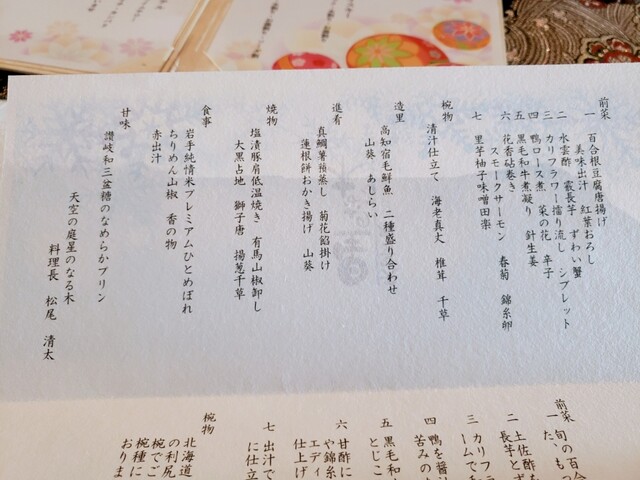 前菜
一 百合根豆腐唐揚げ
美味出汁 紅葉おろし
二 水雲酢 霰長芋 ずわい蟹
三 カリフラワー擂り流し シブレット
四 鴨ロース煮 菜の花 辛子
五 黒毛和牛煮凝り 針生姜
六 花香砧巻き
スモークサーモン 春菊 錦糸卵
七 里芋柚子味噌田楽
椀物
清汁仕立て 海老真丈 椎茸 千草
造里
高知宿毛鮮魚 二種盛り合わせ
山葵 あしらい
進肴
真鯛薯蕷蒸し 菊花餡掛け
蓮根餅おかき揚げ 山葵
焼物
塩漬豚肩低温焼き 有馬山椒卸し
大黒占地 獅子唐 揚葱千草
食事
岩手純情米プレミアムひとめぼれ
ちりめん山椒 香の物
赤出汁
甘味
讃岐和三盆糖のなめらかプリン
天空の庭星のなる木
料理長 松尾 清太
前菜
一 旬の百合
た、もっ
二 土佐酢を
長芋とず
三 カリフラ
ームで
四 鴨を醤油
苦みのあ
五 黒毛和
とじこ
六 甘酢に
や錦糸
エディ
仕上げ
七 出汁で
に仕立
椀物
北海道
の利尻
椀でご
椀種に
おりま